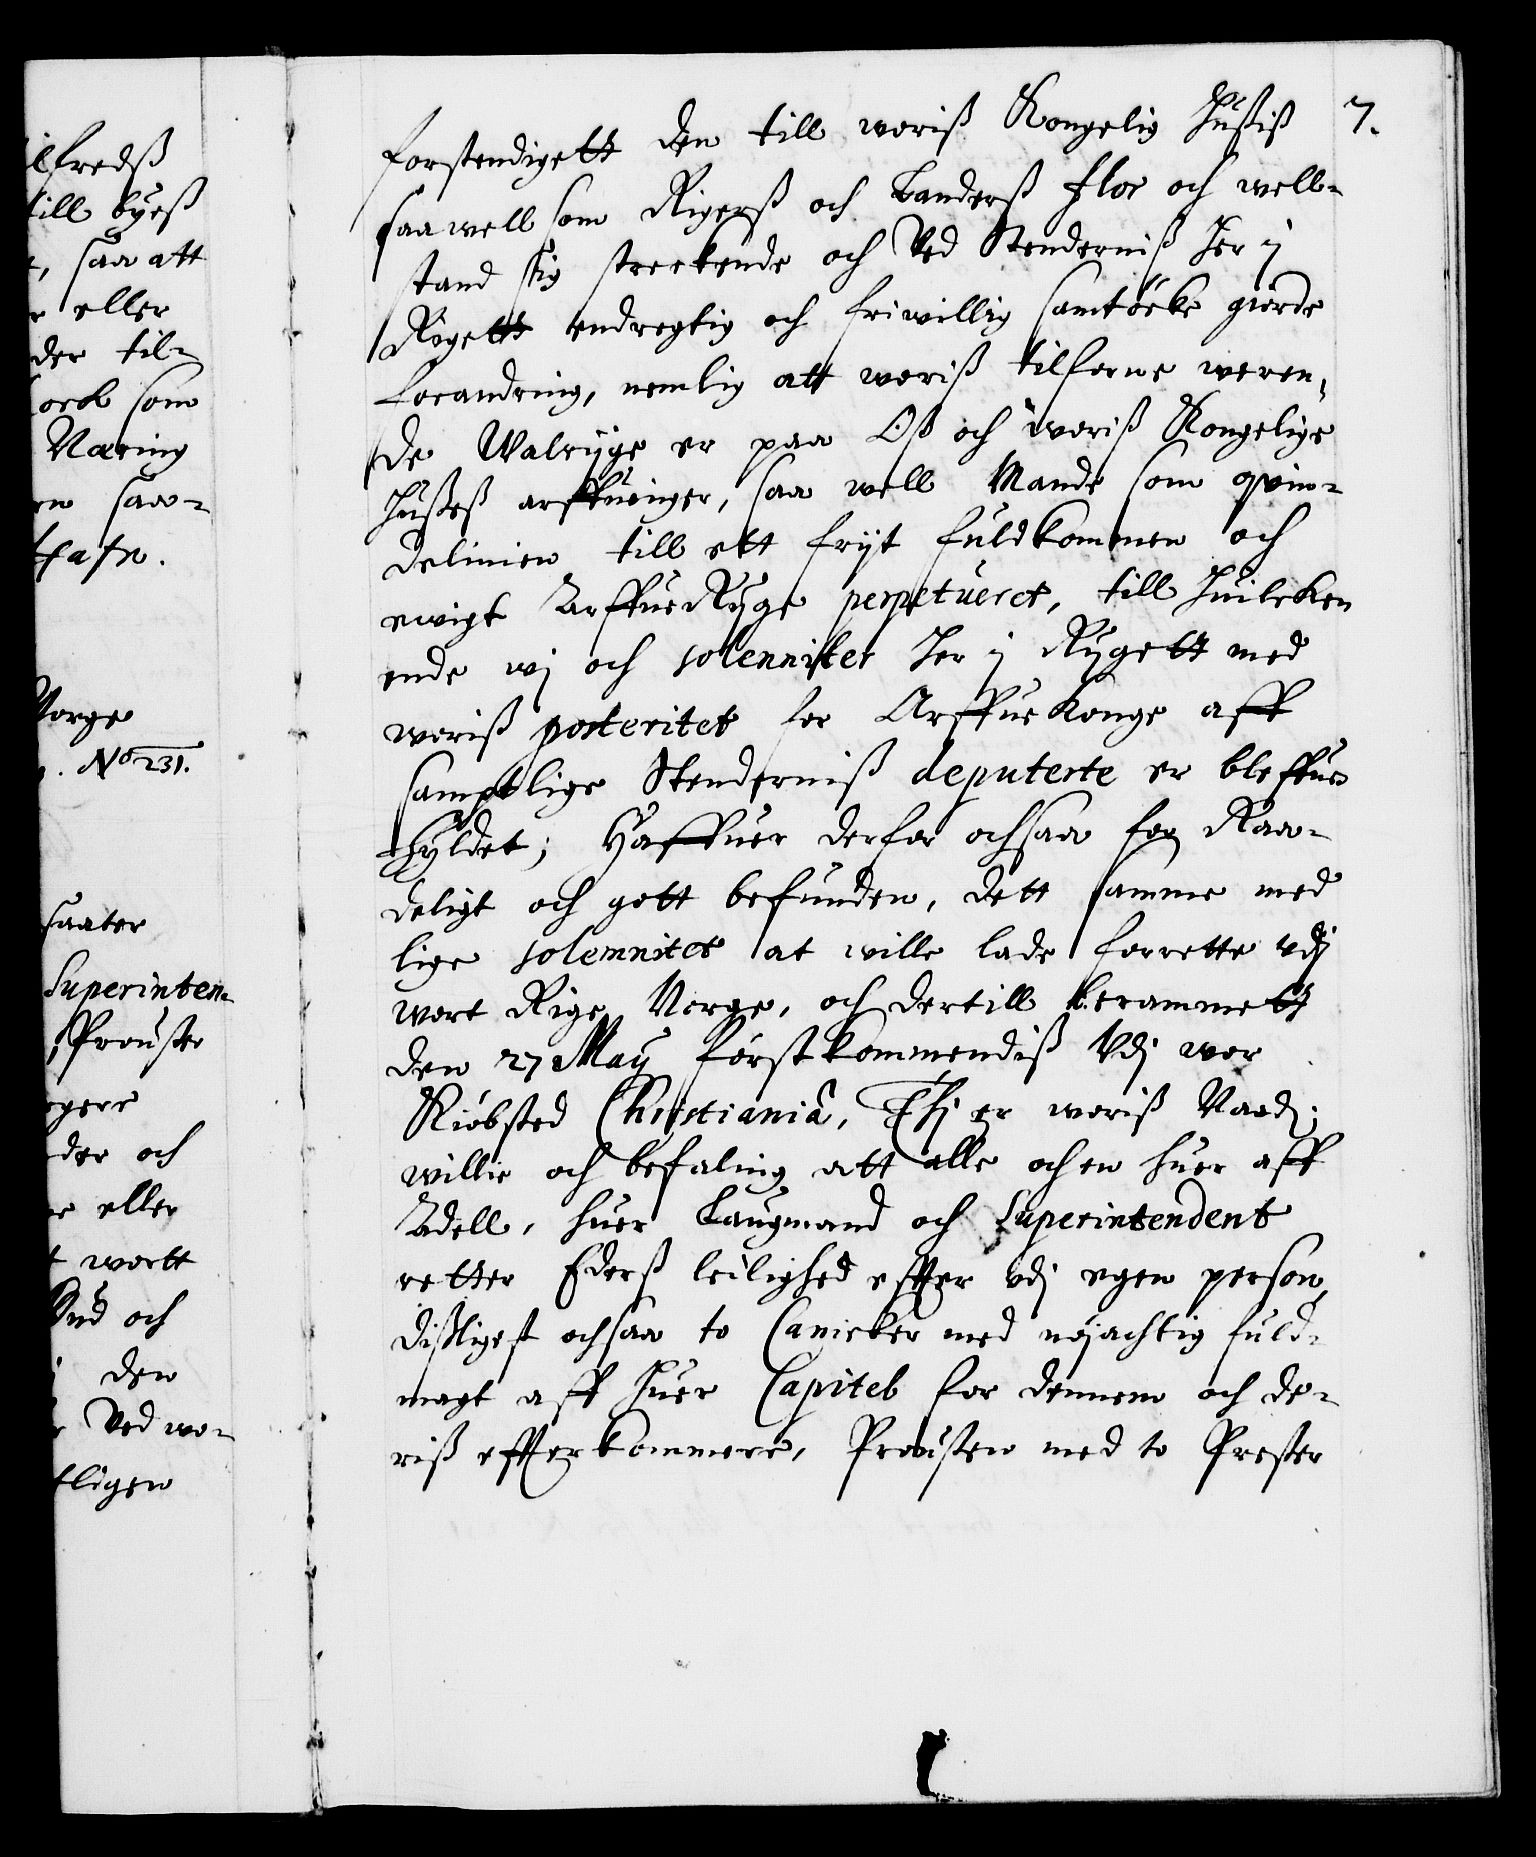 ilfredß
till byeß
, saa att
eller
der til-
som
Næring
saa-
Norge
No 231.
saater
Superinten-
Prouster
der och
eller
wortt
och
den
Ved wo-
7.
forstendigett den till woriß Kongelig Hußiß
saawell som Rigerß och Landerß flor och well-
stand sig streckende och Ved Stenderniß her i
Rigett endregtig och friwillig samtöcke giorde
forandring, nemlig att woriß tilforne weren-
de Walrijge er paa Oß och woriß Kongelige
Hußeß arffuinger, saa well Mande som qvin-
delinien till ett frijt fuldkommen och
ewigt ArffueRyge perpetueret, till huilcken
ende wj och solenniter her i Rygett med
woriß posteritet for ArffueKonge aff
samptlige Stenderniß deputerte er bleffuen
hyldet; Haffuer derfor ochsaa for Raa-
deligt och gott befunden, dett samme med
lige solemnitet at wille lade forrette vdj
wort Rige Norge, och dertill berammett
den 27 May förstkommendiß Vdj wor
Kiöbsted Christiania, Thj er woriß Naad:
willie och befaling att alle och en huer aff
Adell, huer Laugmand och Superintendent
retter Ederß leilighed effter vdj egen person,
dißligest ochsaa to Canicker med nöjachtig fuld-
magt aff huer Capitel for dennem och de-
riß efterkommere, Prousten med to Prester